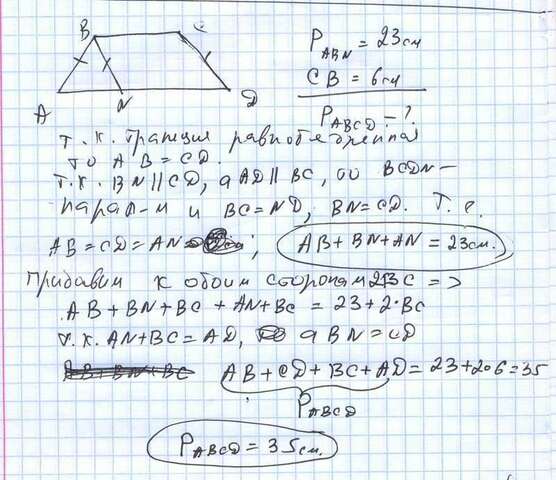 B C
A N D
P ABN = 23 см
CB = 6 см
P ABCD - ?
т.к. трапеция равнобедренная
то AB = CD.
т.к. BN || CD, а AD || BC, то BCDN –
парал-м и BC = ND, BN = CD. Т.е.
AB = CD = AN ; AB + BN + AN = 23 см.
Придавим к обоим сторонам 2BC =>
AB + BN + BC + AN + BC = 23 + 2·BC
т.к. AN + BC = AD, а BN = CD
AB + CD + BC + AD = 23 + 2·6 = 35
P ABCD
P ABCD = 35 см.